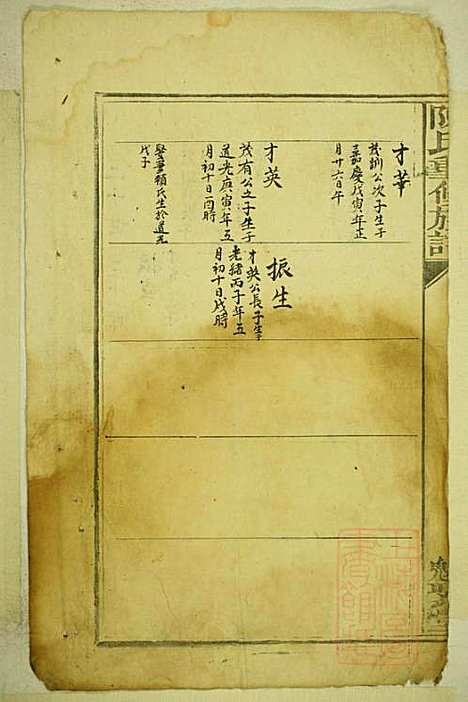 陳氏重修族譜
才華
茂訓公次子生于
嘉慶戊寅年正
月廿六日午
才英
茂有公之子生于
道光庚寅年五
月初十日酉時
娶葉賴氏生於道光
戊子
振生
才英公長子生于
光緒丙子年五
月初十日戌時